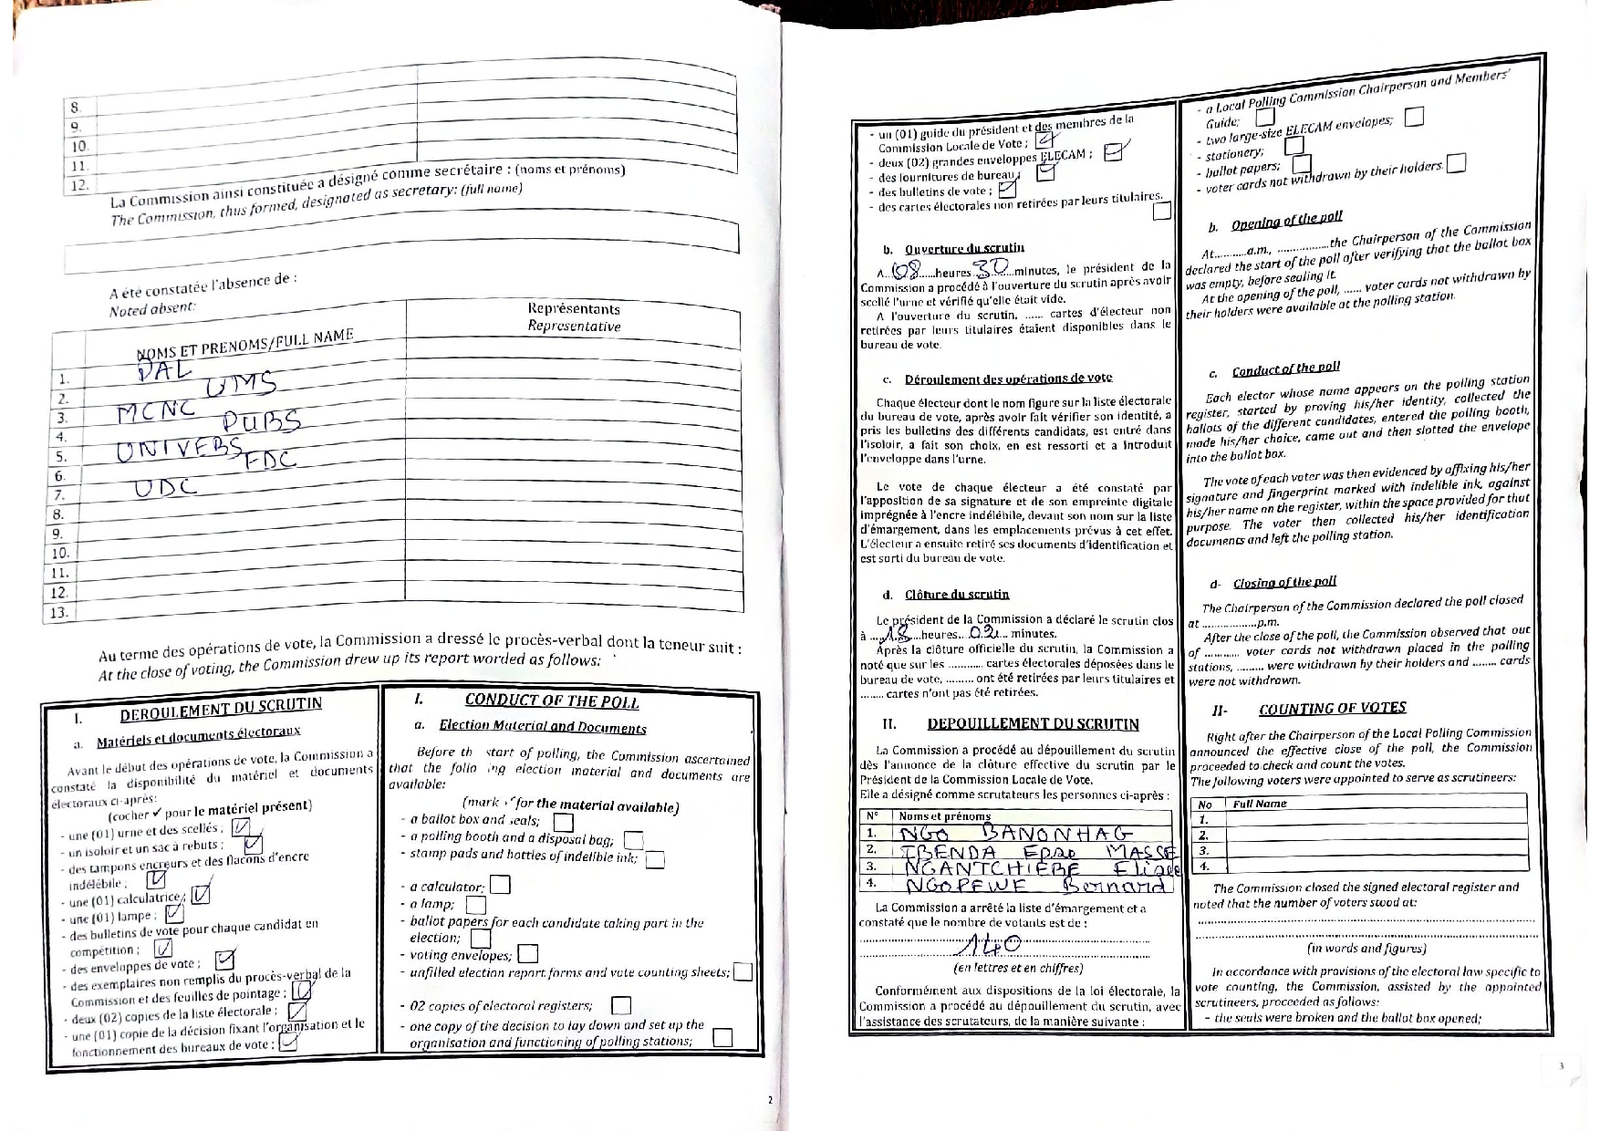 8.
9.
10.
11.
12.
La Commission ainsi constituée a désigné comme secrétaire : (noms et prénoms)
The Commission, thus formed, designated as secretary: (full name)
A été constatée l'absence de :
Noted absent:
NOMS ET PRENOMS/FULL NAME
Représentants
Representative
1. PAL
2. UMS
3. MCNC
4. PURS
5. UNIVERS
6. FDC
7. UDC
8.
9.
10.
11.
12.
13.
Au terme des opérations de vote, la Commission a dressé le procès-verbal dont la teneur suit :
At the close of voting, the Commission drew up its report worded as follows:
I. DEROULEMENT DU SCRUTIN
a. Matériels et documents électoraux
Avant le début des opérations de vote, la Commission a
constaté la disponibilité du matériel et documents
électoraux ci-après:
(cocher ✓ pour le matériel présent)
- une (01) urne et des scellés ;
- un isoloir et un sac à rebuts ;
- des tampons encreurs et des flacons d'encre
indélébile ;
- une (01) calculatrice ;
- une (01) lampe ;
- des bulletins de vote pour chaque candidat en
compétition ;
- des enveloppes de vote ;
- des exemplaires non remplis du procès-verbal de la
Commission et des feuilles de pointage ;
- deux (02) copies de la liste électorale ;
- une (01) copie de la décision fixant l'organisation et le
fonctionnement des bureaux de vote ;
I. CONDUCT OF THE POLL
a. Election Material and Documents
Before th start of polling, the Commission ascertained
that the follo ing election material and documents are
available:
(mark ✓ for the material available)
- a ballot box and seals;
- a polling booth and a disposal bag;
- stamp pads and bottles of indelible ink;
- a calculator;
- a lamp;
- ballot papers for each candidate taking part in the
election;
- voting envelopes;
- unfilled election report forms and vote counting sheets;
- 02 copies of electoral registers;
- one copy of the decision to lay down and set up the
organisation and functioning of polling stations;
2
- un (01) guide du président et des membres de la
Commission Locale de Vote ;
- deux (02) grandes enveloppes ELECAM ;
- des fournitures de bureau ;
- des bulletins de vote ;
- des cartes électorales non retirées par leurs titulaires.
b. Ouverture du scrutin
A 08 heures 30 minutes, le président de la
Commission a procédé à l'ouverture du scrutin après avoir
scellé l'urne et vérifié qu'elle était vide.
A l'ouverture du scrutin, ...... cartes d'électeur non
retirées par leurs titulaires étaient disponibles dans le
bureau de vote.
c. Déroulement des opérations de vote
Chaque électeur dont le nom figure sur la liste électorale
du bureau de vote, après avoir fait vérifier son identité, a
pris les bulletins des différents candidats, est entré dans
l'isoloir, a fait son choix, en est ressorti et a introduit
l'enveloppe dans l'urne.
Le vote de chaque électeur a été constaté par
l'apposition de sa signature et de son empreinte digitale
imprégnée à l'encre indélébile, devant son nom sur la liste
d'émargement, dans les emplacements prévus à cet effet.
L'électeur a ensuite retiré ses documents d'identification et
est sorti du bureau de vote.
d. Clôture du scrutin
Le président de la Commission a déclaré le scrutin clos
à 18 heures 02 minutes.
Après la clôture officielle du scrutin, la Commission a
noté que sur les ........... cartes électorales déposées dans le
bureau de vote, ......... ont été retirées par leurs titulaires et
........ cartes n'ont pas été retirées.
II. DEPOUILLEMENT DU SCRUTIN
La Commission a procédé au dépouillement du scrutin
dès l'annonce de la clôture effective du scrutin par le
Président de la Commission Locale de Vote.
Elle a désigné comme scrutateurs les personnes ci-après :
N° Noms et prénoms
1. NGO BANONHAG
2. IBENDA Epse MASSE
3. NGANTCHIEBE
4. NGOPEWE Bernard
La Commission a arrêté la liste d'émargement et a
constaté que le nombre de votants est de :
140
(en lettres et en chiffres)
Conformément aux dispositions de la loi électorale, la
Commission a procédé au dépouillement du scrutin, avec
l'assistance des scrutateurs, de la manière suivante :
- a Local Polling Commission Chairperson and Members'
Guide;
- two large-size ELECAM envelopes;
- stationery;
- ballot papers;
- voter cards not withdrawn by their holders.
b. Opening of the poll
At...........a.m., .................the Chairperson of the Commission
declared the start of the poll after verifying that the ballot box
was empty, before sealing it.
At the opening of the poll, ...... voter cards not withdrawn by
their holders were available at the polling station.
c. Conduct of the poll
Each elector whose name appears on the polling station
register, started by proving his/her identity, collected the
ballots of the different candidates, entered the polling booth,
made his/her choice, came out and then slotted the envelope
into the ballot box.
The vote of each voter was then evidenced by affixing his/her
signature and fingerprint marked with indelible ink, against
his/her name on the register, within the space provided for that
purpose. The voter then collected his/her identification
documents and left the polling station.
d- Closing of the poll
The Chairperson of the Commission declared the poll closed
at ..................p.m.
After the close of the poll, the Commission observed that out
of ........... voter cards not withdrawn placed in the polling
stations, ......... were withdrawn by their holders and ........ cards
were not withdrawn.
II- COUNTING OF VOTES
Right after the Chairperson of the Local Polling Commission
announced the effective close of the poll, the Commission
proceeded to check and count the votes.
The following voters were appointed to serve as scrutineers:
No Full Name
1.
2.
3.
4.
The Commission closed the signed electoral register and
noted that the number of voters stood at:
(in words and figures)
In accordance with provisions of the electoral law specific to
vote counting, the Commission, assisted by the appointed
scrutineers, proceeded as follows:
- the seals were broken and the ballot box opened;
3